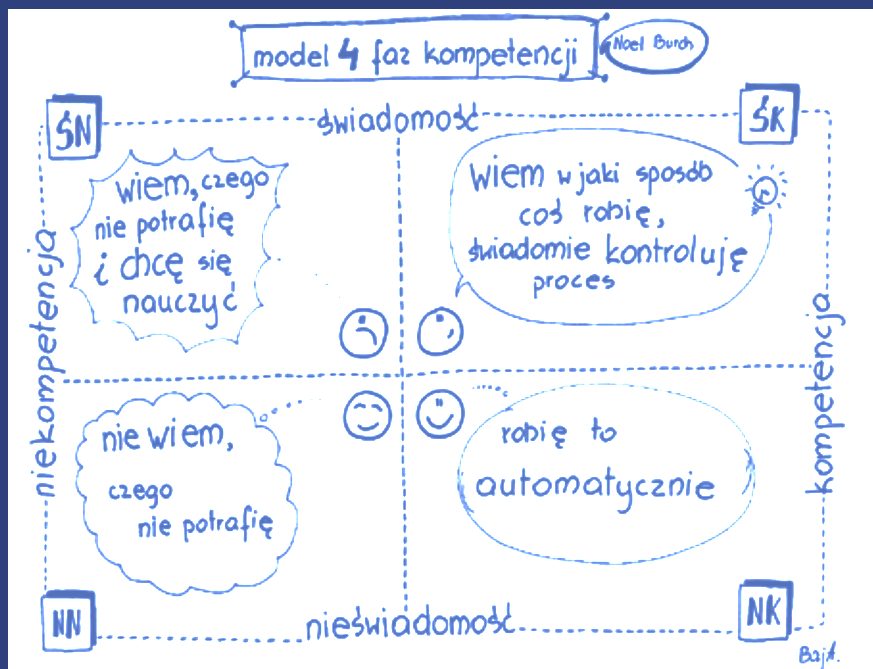 model 4 faz kompetencji
Noel Burch
ŚN
świadomość
ŚK
wiem, czego
nie potrafię
i chcę się
nauczyć
wiem w jaki sposób
coś robię,
świadomie kontroluję
proces
niekompetencja
kompetencja
nie wiem,
czego
nie potrafię
robię to
automatycznie
NN
nieświadomość
NK